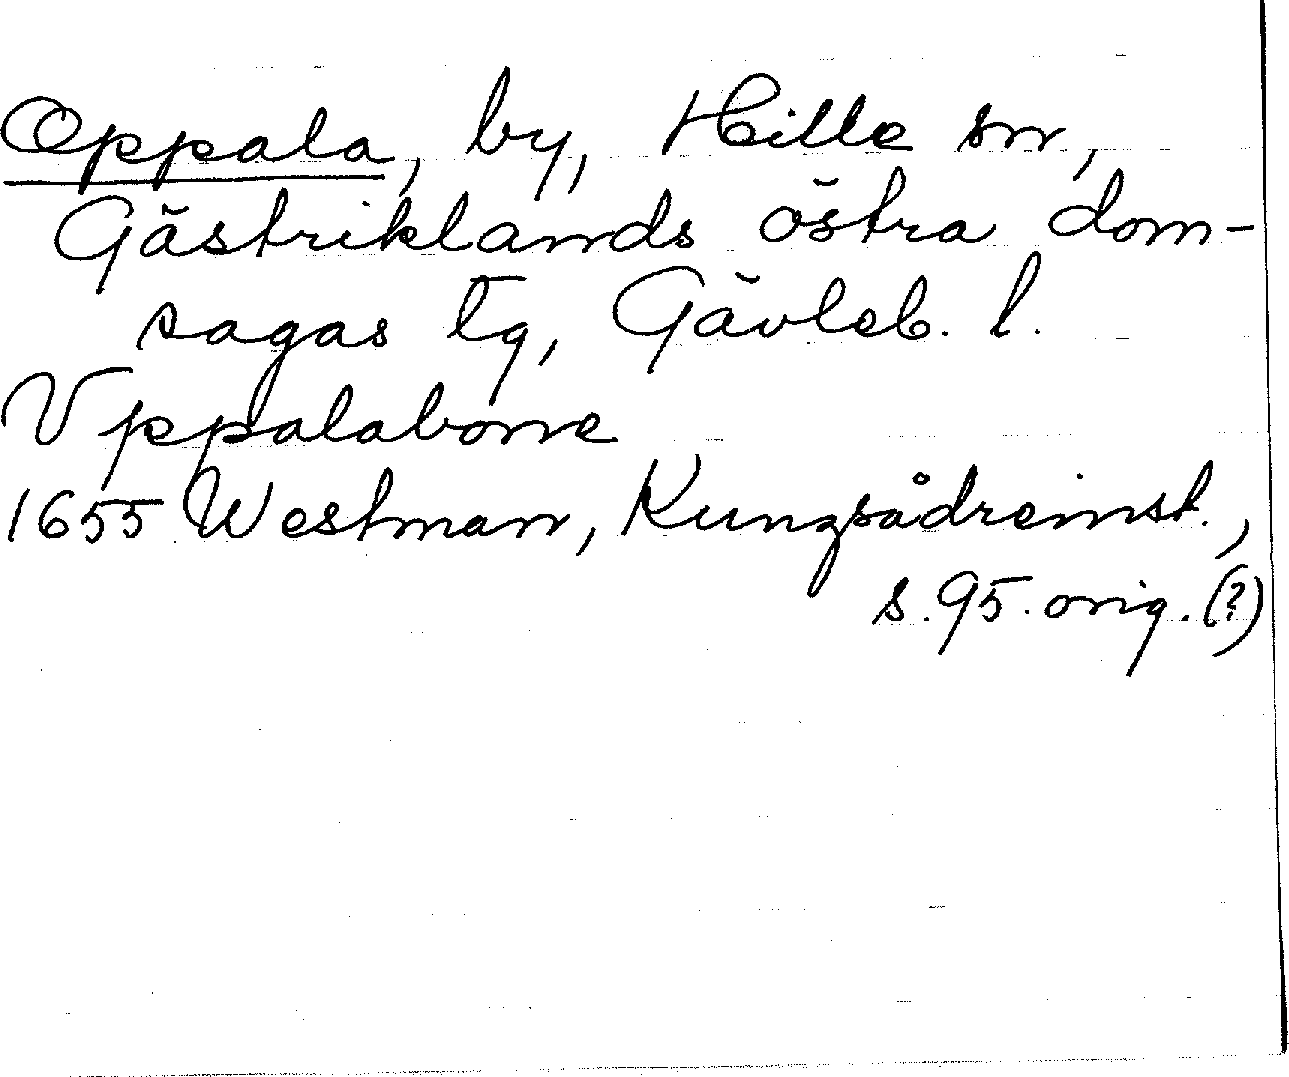 Oppala, by, Hille sn,
Gästriklands östra dom-
sagas tg, Gävleb. l.
Vppalabonne
1655 Westman, Kungsådreinst.,
s. 95. orig. (?)